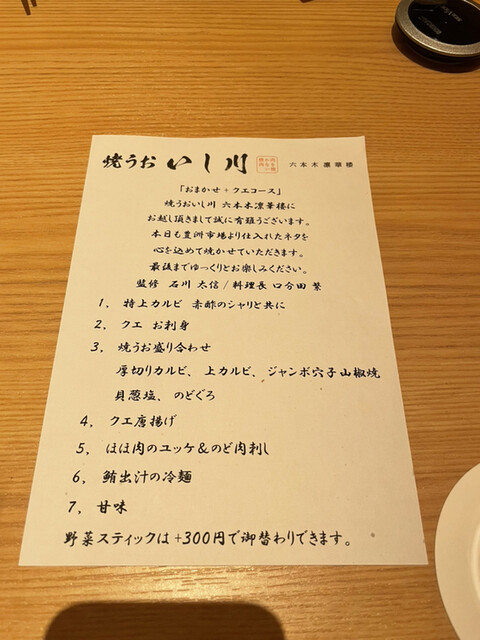 焼うお いし川 六本木凛華楼
「おまかせ + クエコース」
焼うおいし川 六本木凛華楼に
お越し頂きまして誠に有難うございます。
本日も豊洲市場より仕入れたネタを
心を込めて焼かせていただきます。
最後までゆっくりとお楽しみください。
監修 石川 太信 / 料理長 口分田 繁
1、 特上カルビ 赤酢のシャリと共に
2、 クエ お刺身
3、 焼うお盛り合わせ
厚切りカルビ、 上カルビ、 ジャンボ穴子山椒焼
貝葱塩、 のどぐろ
4、 クエ唐揚げ
5、 ほほ肉のユッケ&のど肉刺し
6、 鮪出汁の冷麺
7、 甘味
野菜スティックは +300円で御替わりできます。